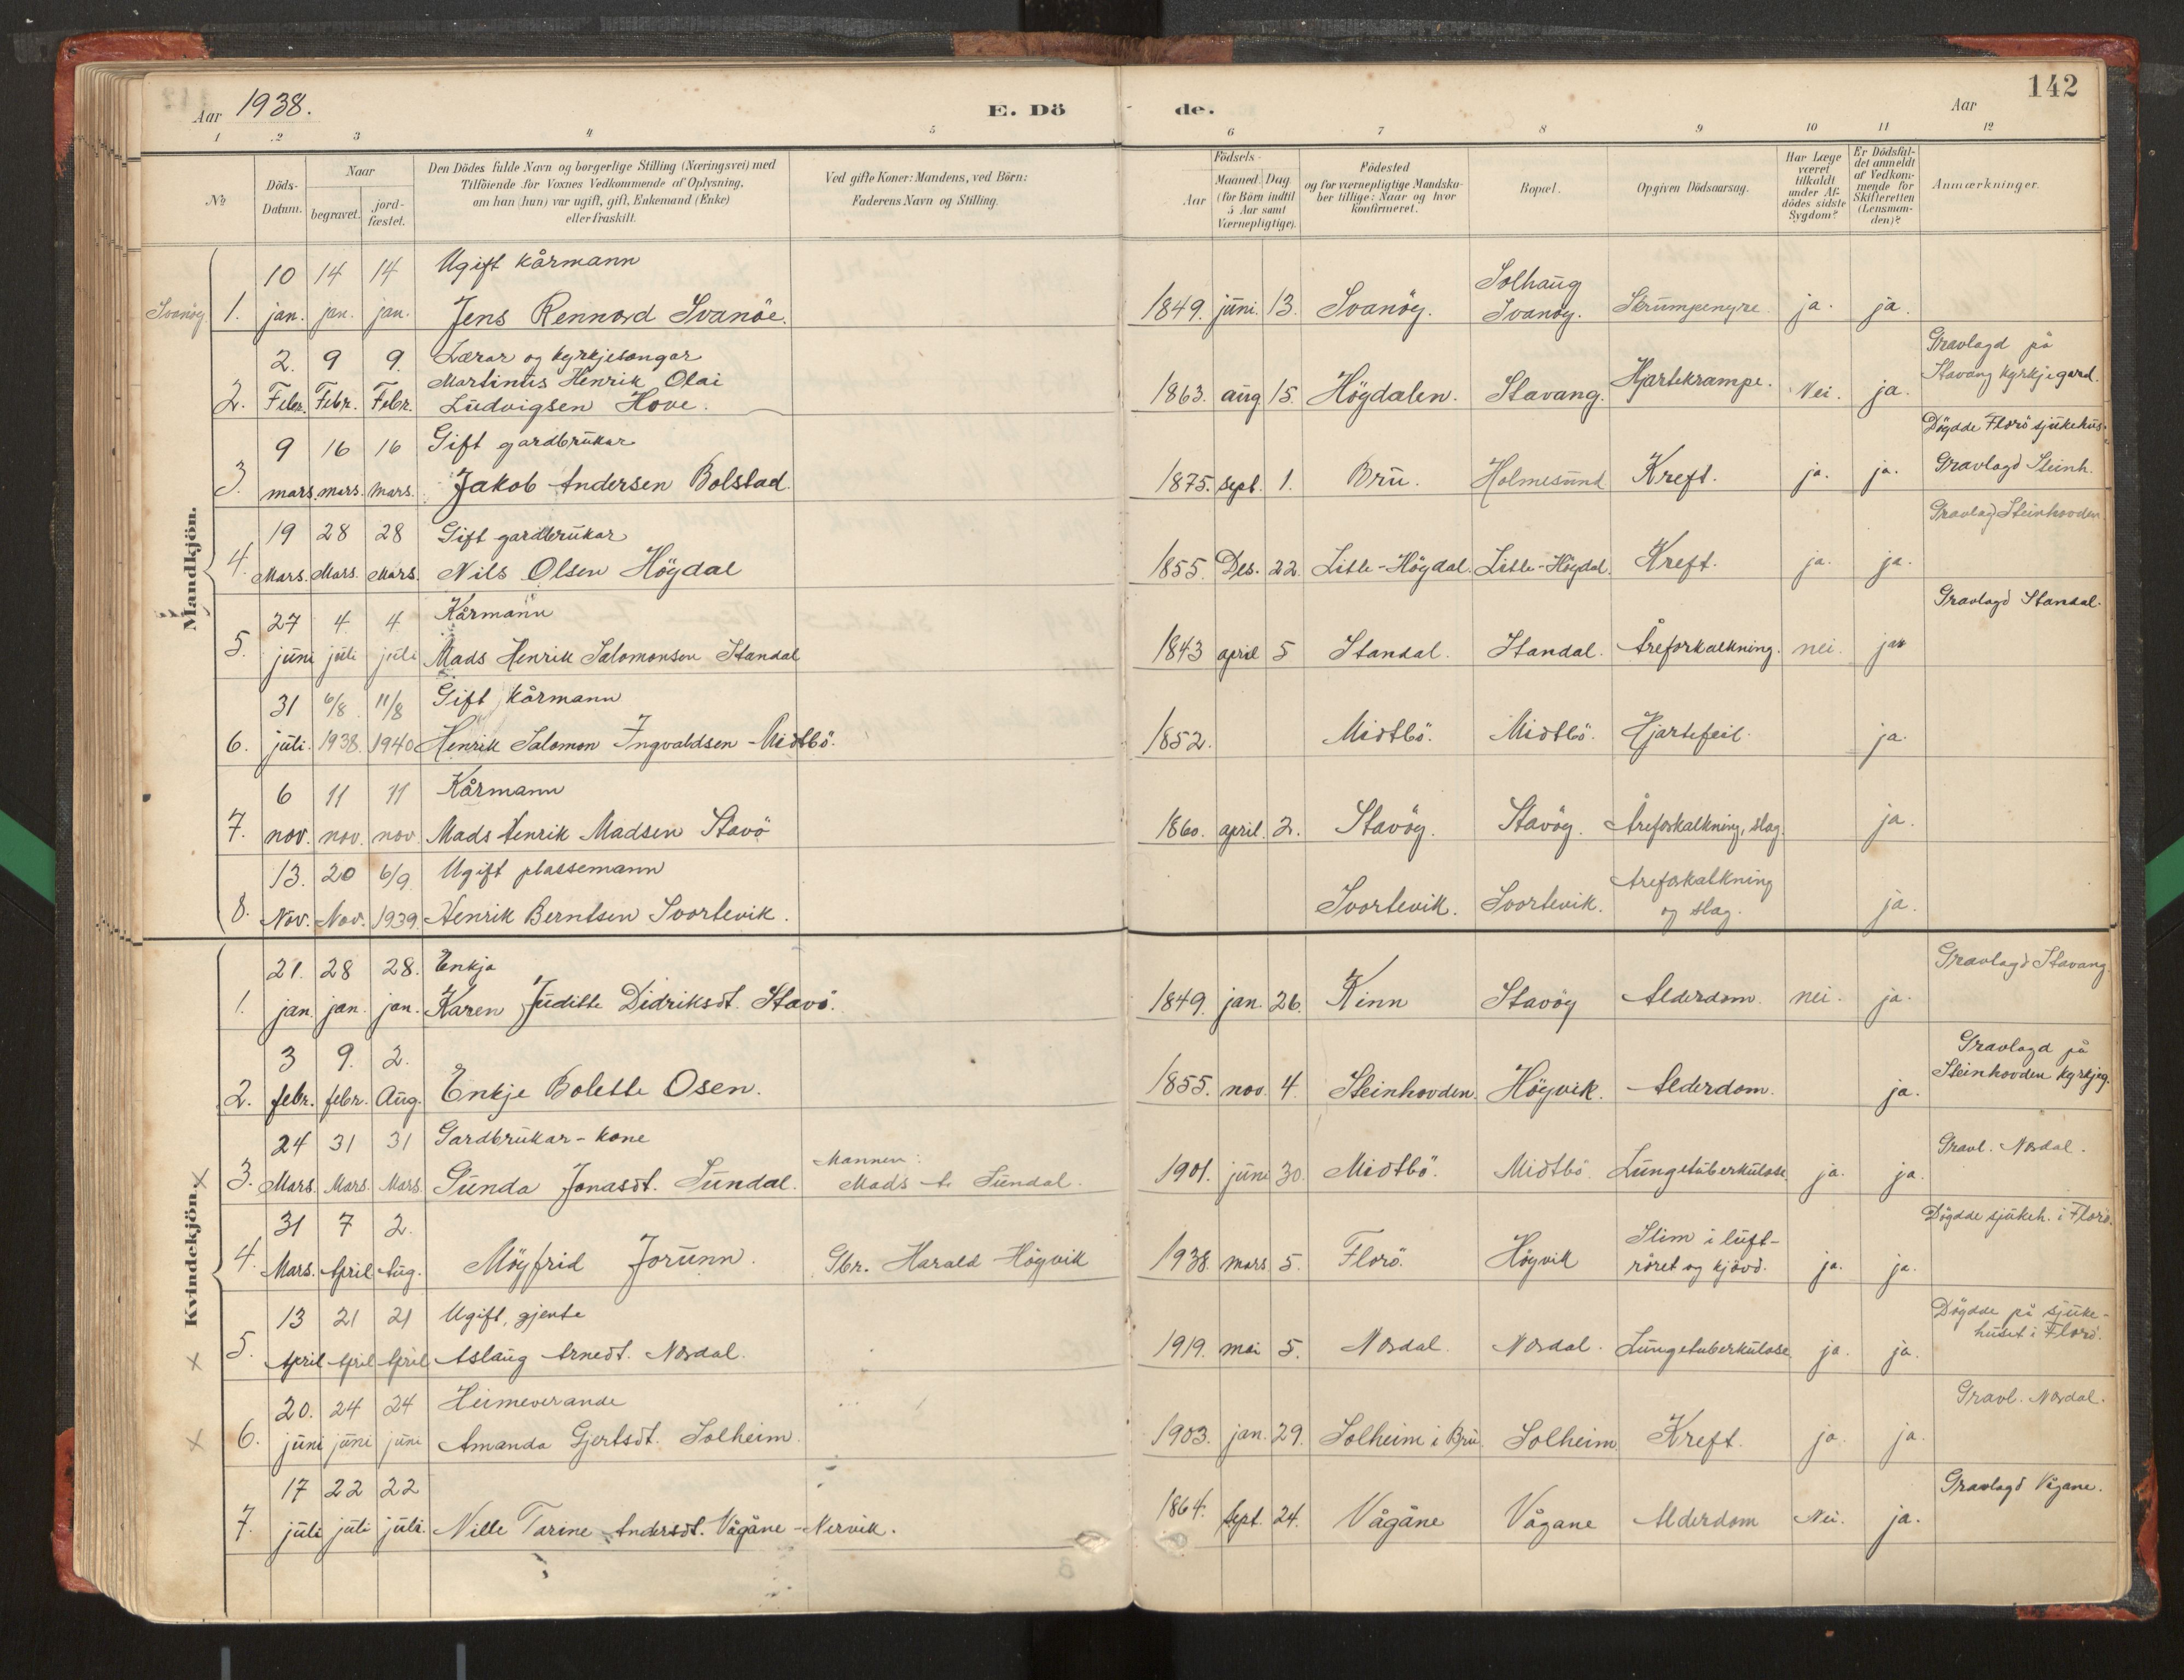 Aar 1938.
E. Dö
de.
Aar
142
1 2 3 4 5 6 7 8 9 10 11 12
No
Döds-
Datum.
Naar
begravet.
jord-
fæstet.
Den Dödes fulde Navn og borgerlige Stilling (Næringsvei) med
Tilföiende for Voxnes Vedkommende af Oplysning,
om han (hun) var ugift, gift, Enkemand (Enke)
eller fraskilt.
Ved gifte Koner: Mandens, ved Börn:
Faderens Navn og Stilling.
Födsels-
Aar
Maaned. Dag
(for Börn indtil
5 Aar samt
Værnepligtige).
Födested
og for værnepligtige Mandska-
ber tillige: Naar og hvor
konfirmeret.
Bopæl.
Opgiven Dödsaarsag.
Har Læge
været
tilkaldt
under Af-
dödes sidste
Sygdom?
Er Dödsfal-
det anmeldt
af Vedkom-
mende for
Skifteretten
(Lensman-
den)?
Anmærkninger.
Mandkjön.
10 14 14 Ugift kårmann
Solhaug
Svanöy 1. jan. jan. jan. Jens Rennord Svanöe. 1849. juni. 13. Svanöy. Svanöy. Skrumpenyre. ja. ja.
2. 9 9. Lærar og kyrkjesongar
Gravlagd på
Martinus Henrik Olai
Stavang kyrkjegard.
2. Febr. Febr. Febr. Ludvigsen Hove. 1863. aug 15. Högdalen. Stavang. Hjartekrampe. Nei. ja.
9 16 16 Gift gardbrukar
Döydde Florö sjukehus.
3. mars. mars. mars. Jakob Andersen Bolstad. 1875. sept. 1. Bru. Holmesund Kreft. ja. ja. Gravlagd Steinh.
19 28 28 Gift gardbrukar
Gravlagd Steinhovden
4. Mars. Mars. Mars. Nils Olsen Högdal 1855. Des. 22. Litle-Högdal. Litle-Högdal. Kreft. ja. ja.
27 4. 4. Kårmann
Gravlagd Standal.
5. juni juli juli Mads Henrik Salomonsen Standal 1843 april 5 Standal. Standal. Åreforkalkning. nei. ja
31 6/8 11/8 Gift kårmann
6. juli. 1938. 1940 Henrik Salomon Ingvaldsen Midtbö. 1852. Midtbö. Midtbö. Hjartefeil. ja.
6 11 11 Kårmann
7. nov. nov. nov Mads Henrik Madsen Stavö 1860. april. 2. Stavöy. Stavöy. Åreforkalkning, slag. ja.
13. 20 6/9. Ugift plassemann
Åreforkalkning
8. Nov. Nov. 1939. Henrik Berntsen Svortevik. Svortevik. Svortevik. og slag. ja.
Kvindekjön.
21. 28 28. Enkja
Gravlagd Stavang.
1. jan. jan. jan. Karen Juditte Didriksdt. Stavö. 1849. jan. 26. Kinn Stavöy Alderdom. nei. ja.
3 9. 2.
Gravlagd på
Steinhovden kyrkjeg.
2. febr. febr. Aug. Enkje Bolette Osen. 1855. nov. 4. Steinhovden. Högvik. Alderdom. ja.
24 31 31 Gardbrukar-kone
Mannen:
Gravl. Nordal.
3. Mars. Mars. Mars. Gunda Jonasdt. Sundal. Mads A. Sundal. 1901. juni 30. Midtbö. Midtbö Lungetuberkulose. ja. ja.
31 7 2.
Slim i luft-
Döydde sjukeh. i Florö.
4. Mars. April Aug. Möyfrid Jorunn. Gbr. Harald Högvik 1938. mars 5. Florö. Högvik röret og kjövd. ja. ja.
13 21 21 Ugift, gjente
Döydde på sjuke-
huset i Florö.
5. April April April Aslaug Arnedt. Nordal. 1919. mai 5. Nordal. Nordal. Lungetuberkulose ja. ja.
20. 24 24 Heimeverande
Gravl. Nordal.
6. juni juni juni Amanda Gjertsdt. Solheim. 1903. jan. 29. Solheim i Bru Solheim Kreft. ja. ja.
17 22 22
Gravlagd Vågane.
7. juli juli juli. Nille Tarine Andersdt. Vågane-Nervik. 1864. sept. 24. Vågane Vågane Alderdom Nei. ja.